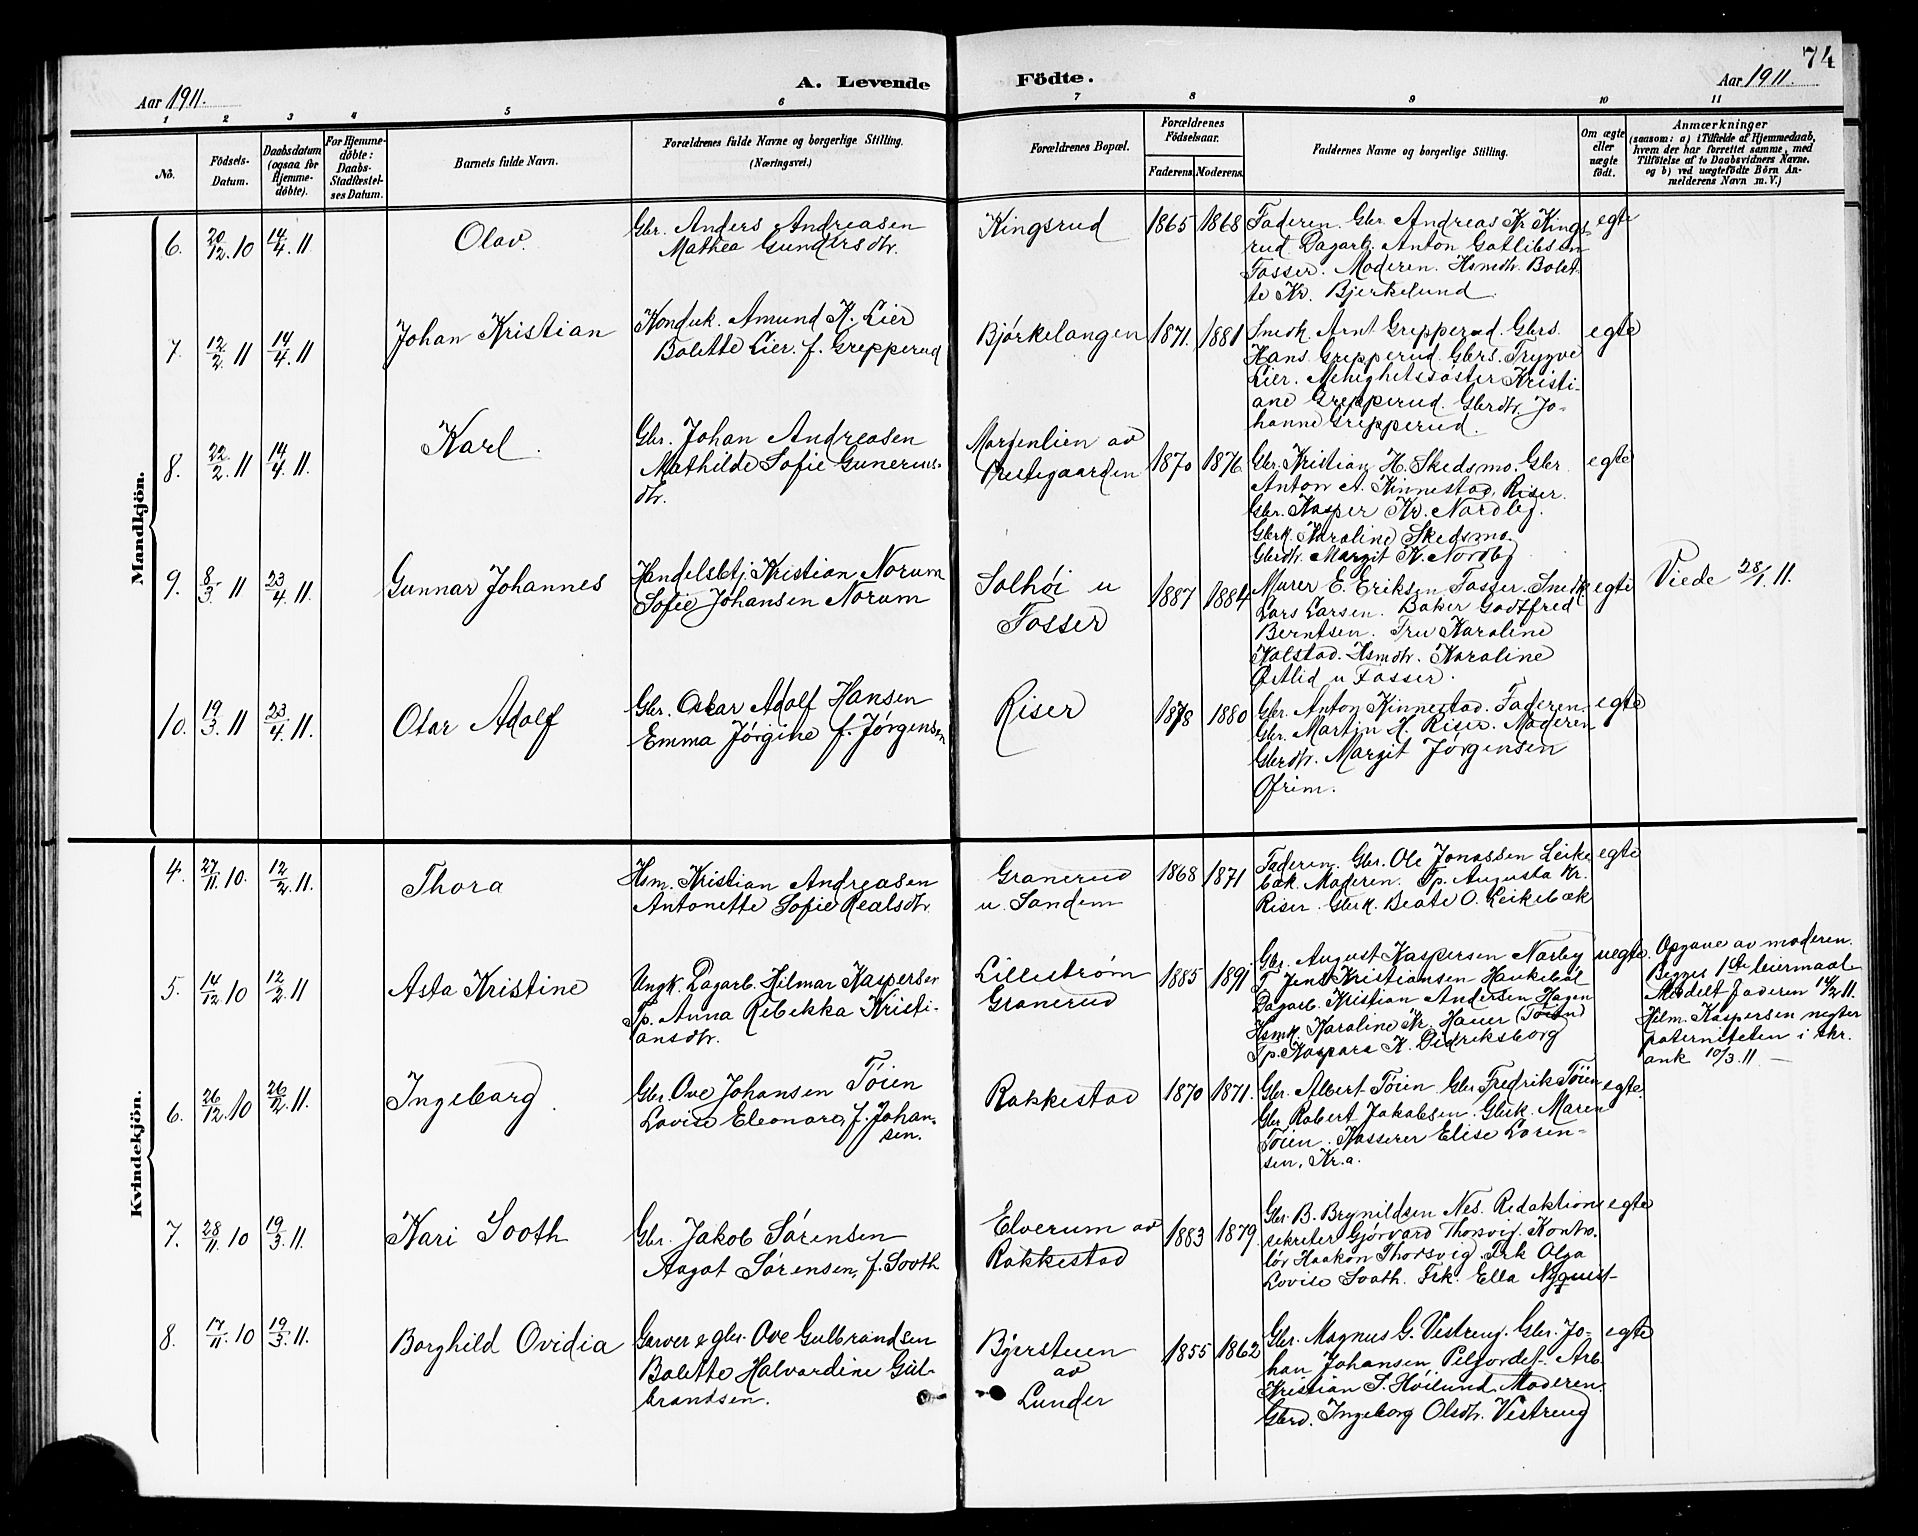 74
Aar 1911.
A. Levende Födte.
Aar 1911.
1 2 3 4 5 6 7 8 9 10 11
No.
Födsels-
Datum.
Daabsdatum
(ogsaa for
Hjemme-
döbte).
For Hjemme-
döbte:
Daabs-
Stadfæstel-
ses Datum.
Barnets fulde Navn.
Forældrenes fulde Navne og borgerlige Stilling.
(Næringsvei.)
Forældrenes Bopæl.
Forældrenes
Födselsaar.
Faderens.
Moderens.
Faddernes Navne og borgerlige Stilling.
Om ægte
eller
uægte
födt.
Anmærkninger
(saasom: a) i Tilfælde af Hjemmedaab,
hvem der har forrettet samme, med
Tilföielse af to Daabsvidners Navne.
og b) ved uægtefödte Börn An-
melderens Navn m. V.)
Mandkjön.
6. 20/12.10 14/4.11 Olav.
Gbr. Anders Andreasen
Mathea Gundersdtr.
Kingsrud 1865 1868
Faderen. Gbr. Andreas Kr Kings-
rud. Dagarb. Anton Gotlibsen
Fosser. Moderen. Hsmdtr. Bolet-
te Kr. Bjerkelund.
egte
7. 12/2.11 14/4.11 Johan Kristian
Konduk. Amund K. Lier
Bolette Lier. f. Grepperud
Bjørkelangen 1871. 1881
Snedk. Arnt Grepperud. Gbrs.
Hans Grepperud. Gbrs. Trygve
Lier. Menighetssøster Kristi-
ane Grepperud. Gbrdtr. Jo-
hanne Grepperud.
egte
8. 22/2.11 14/4.11. Karl.
Gbr. Johan Andreasen
Mathilde Sofie Gunerius-
dtr.
Morgenlien av
Prestegaarden 1870 1876
Gbr. Kristian H. Skedsmo. Gbr.
Anton A. Kinnestad, Riser.
Gbr. Kasper Kr. Nordby.
Gbrk. Karoline Skedsmo.
Gbrdtr. Margit K. Nordby
egte
9. 8/3.11 23/4.11. Gunnar Johannes
Handelsbtj. Kristian Norum
Sofie Johansen Norum
Solhøi u
Fosser
1887 1884
Murer E. Eriksen Fosser. Snedk
Lars Larsen. Baker Godtfred
Berntsen. Fru Karoline
Kolstad. Hsmdtr. Karoline
Østlid u Fosser.
egte
Viede 28/1.11.
10. 19/3.11 23/4.11. Otar Adolf
Gbr. Oskar Adolf Hansen
Emma Jørgine f. Jørgensen
Riser 1878 1880
Gbr. Anton Kinnestad. Faderen.
Gbr. Martin H. Riser. Moderen
Gbrdtr. Margit Jørgensen
Ofrim.
egte
Kvindekjön.
4. 27/11.10. 12/2.11. Thora
Hsm. Kristian Andreasen
Antonette Sofie Realsdtr.
Granerud
u. Sandem
1868 1871
Faderen. Gbr. Ole Jonassen Leike
bæk. Moderen. Tp. Augusta Kr.
Riser. Gbrk. Beate O. Leikebæk
egte
5. 14/12.10 12/2.11 Asta Kristine
Ungk. Dagarb. Hilmar Kaspersen
Tp. Anna Rebekka Kristi-
ansdtr.
Lillestrøm
Granerud
1885 1891
Gbr. August Kaspersen Narby
T Jens Kristiansen Haukebøl
Dagarb. Kristian Andersen Hagen
Hsmk. Karoline Kr. Hauer (Toien)
Tp. Kaspara K. Didriksborg
uegte
Opgave av moderen.
Begges 1ste leiermaal
Meddelt faderen 14/2 11.
Hilm. Kaspersen negter
paterniteten i skr.
ank 10/3.11 —
6. 26/12.10 26/2.11. Ingeborg.
Gbr. Ove Johansen Tøien
Lovise Eleonora, f. Johan-
sen.
Rakkestad 1870 1871.
Gbr. Albert Tøien Gbr. Fredrik Tøien
Gbr. Robert Jakobsen. Gbrk. Maren
Tøien. Kasserer Elise Loren-
sen, Kr.a.
egte.
7. 28/11.10 19/3.11. Kari Sooth
Gbr. Jakob Sørensen
Aagot Sørensen, f. Sooth
Elverum av
Rakkestad
1883 1879
Gbr. B. Brynildsen Nes. Redaktions
sekretær Gjørvard Thorsvig. Kontro-
lør Haakon Thorsvig. Frk Olga
Lovise Sooth. Frk. Ella Nyquist
egte
8. 17/11.10 19/3.11. Borghild Ovidia
Garver & gbr. Ove Gulbrandsen
Bolette Halvardine Gul-
brandsen.
Bjersteuen
av
Lunder
1855 1862
Gbr. Magnus G. Vestreng. Gbr. Jo-
han Johansen, Pelfordet. Arb.
Kristian S. Høilund. Moderen.
Gbrd. Ingeborg Olsdtr. Vestreng
egte